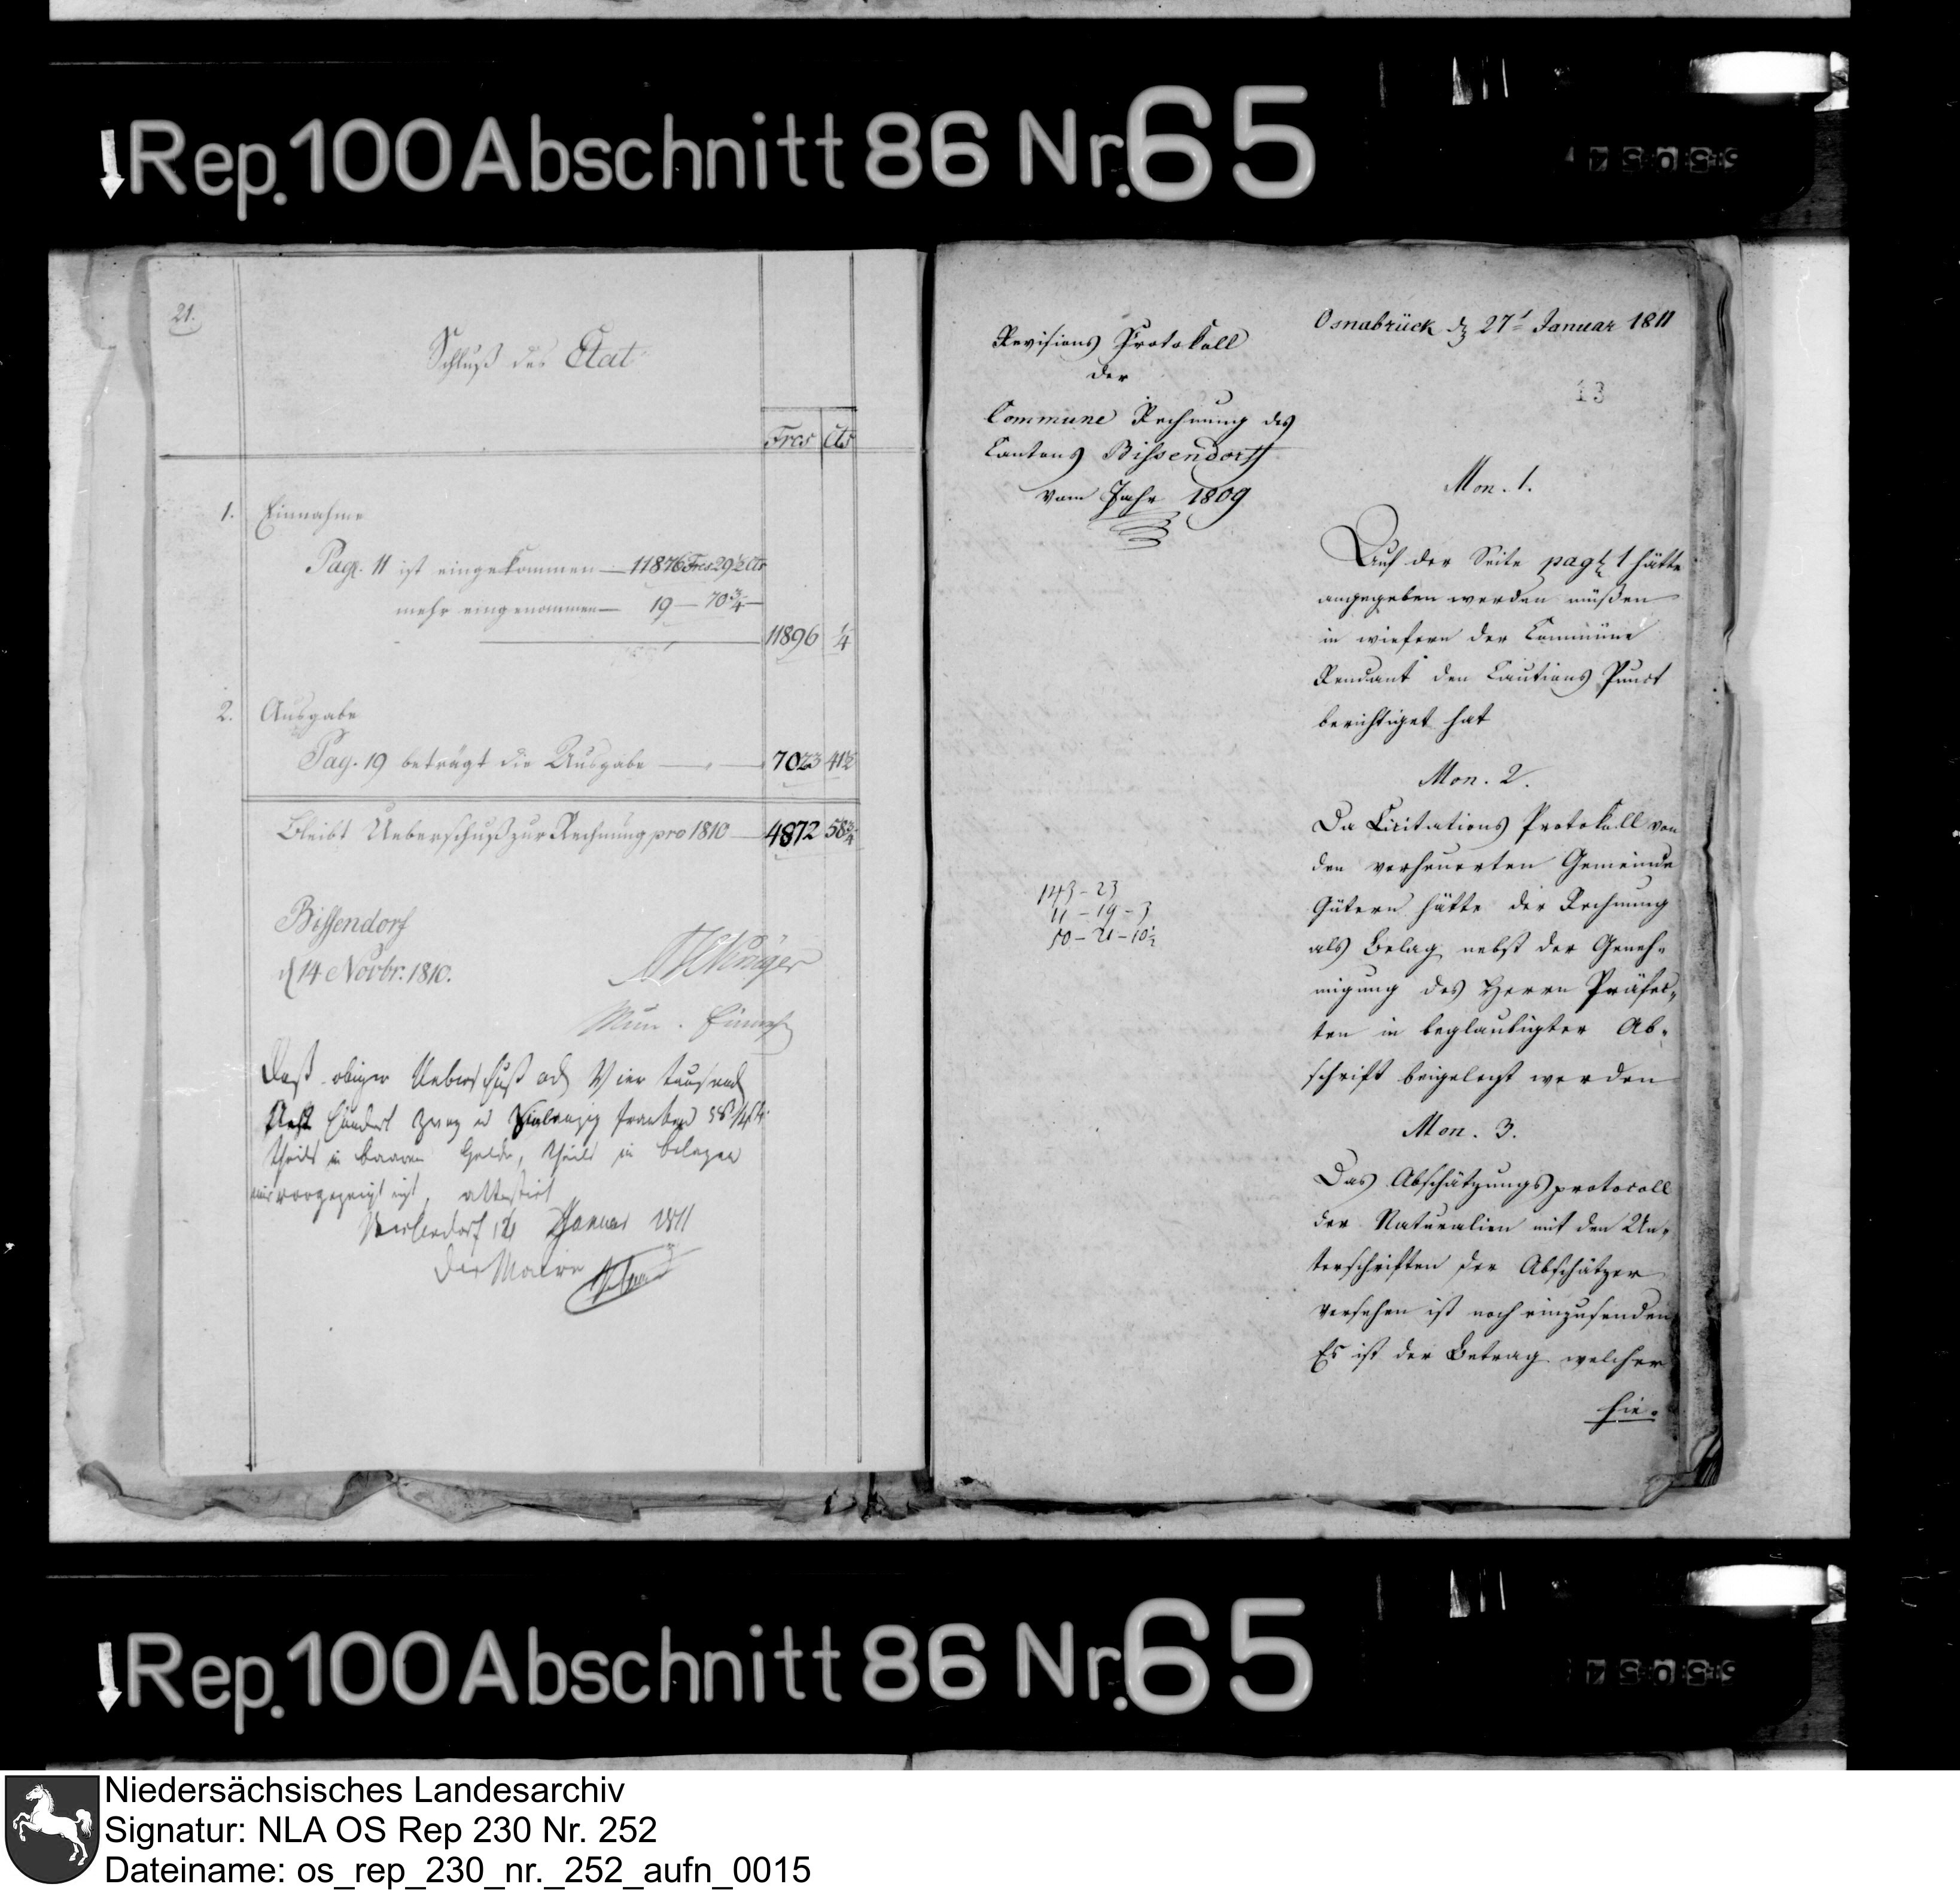 Rep. 100 Abschnitt 86 Nr. 65
21.
Schluß des Etat
Frcs Cts
1. Einnahme
Pag. 11 ist eingekommen — 11876 Frcs 29½ Cts
mehr eingenommen — 19 — 70¾ —
11896 ¼
2. Ausgabe
Pag. 19 beträgt die Ausgabe — 7023 41½
Bleibt Ueberschuß zur Rechnung pro 1810 — 4872 58¾
Bissendorf
d 14 Novbr: 1810.
Mun. Einneh
Daß obiger Ueberschuß ad Vier tausend
Acht Hundert Zwey und Siebenzig Franken 58¾ Ct.
theils in baarem Gelde, theils in Belegen
mir vorgezeigt ist, attestirt
Januar 1811
Der Maire
Osnabrück d. 27t Januar 1811
13
Revisions Protokoll
der
Commune Rechnung des
Cantons Bissendorff
vom Jahr 1809
Mon. 1.
Auf der Seite pag. 1 hätte
angegeben werden müßen
in wiefern der Commüne
Rendant den Cautions Punct
berichtiget hat
Mon. 2.
Da Licitations Protokoll von
den verheuerten Gemeinde
Gütern hätte der Rechnung
als Belag nebst der Geneh-
migung des Herrn Präfec-
ten in beglaubigter Ab-
schrift beigelegt werden
143 - 23
11 - 19 - 3
50 - 21 - 10½
Mon. 3.
Das Abschätzungs protocoll
der Naturalien mit den Un-
terschriften der Abschätzer
versehen ist noch einzusenden
Es ist der Betrag welcher
hie-
Rep. 100 Abschnitt 86 Nr. 65
Niedersächsisches Landesarchiv
Signatur: NLA OS Rep 230 Nr. 252
Dateiname: os_rep_230_nr._252_aufn_0015